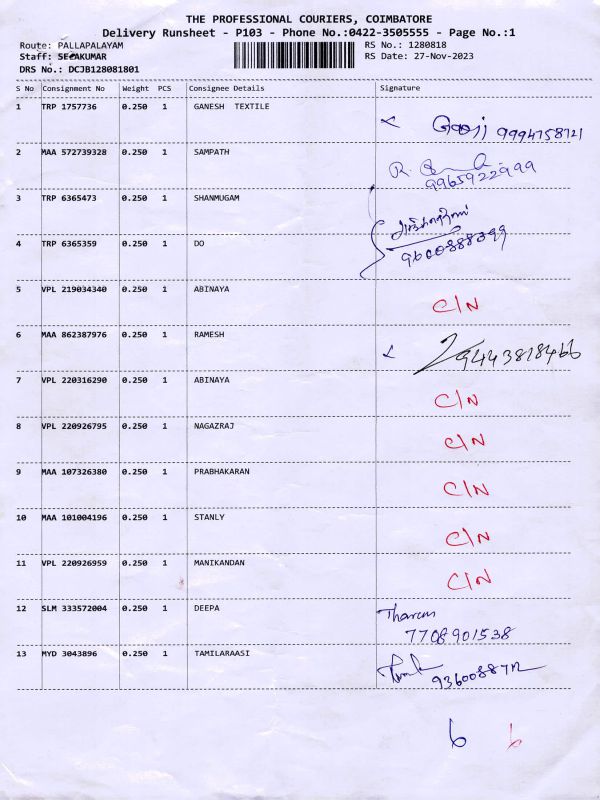 THE PROFESSIONAL COURIERS, COIMBATORE
Delivery Runsheet - P103 - Phone No.:0422-3505555 - Page No.:1
Route: PALLAPALAYAM RS No.: 1280818
Staff: SELAKUMAR RS Date: 27-Nov-2023
DRS No.: DCJB128081801
S No Consignment No Weight PCS Consignee Details Signature
1 TRP 1757736 0.250 1 GANESH TEXTILE
9994758721
2 MAA 572739328 0.250 1 SAMPATH
R.
9965922999
3 TRP 6365473 0.250 1 SHANMUGAM
4 TRP 6365359 0.250 1 DO
9600888399
5 VPL 219034340 0.250 1 ABINAYA
C/N
6 MAA 862387976 0.250 1 RAMESH
9443818466
7 VPL 220316290 0.250 1 ABINAYA
C/N
8 VPL 220926795 0.250 1 NAGAZRAJ
C/N
9 MAA 107326380 0.250 1 PRABHAKARAN
C/N
10 MAA 101004196 0.250 1 STANLY
C/N
11 VPL 220926959 0.250 1 MANIKANDAN
C/N
12 SLM 333572004 0.250 1 DEEPA
Tharun
7708901538
13 MYD 3043896 0.250 1 TAMILARAASI
6 6